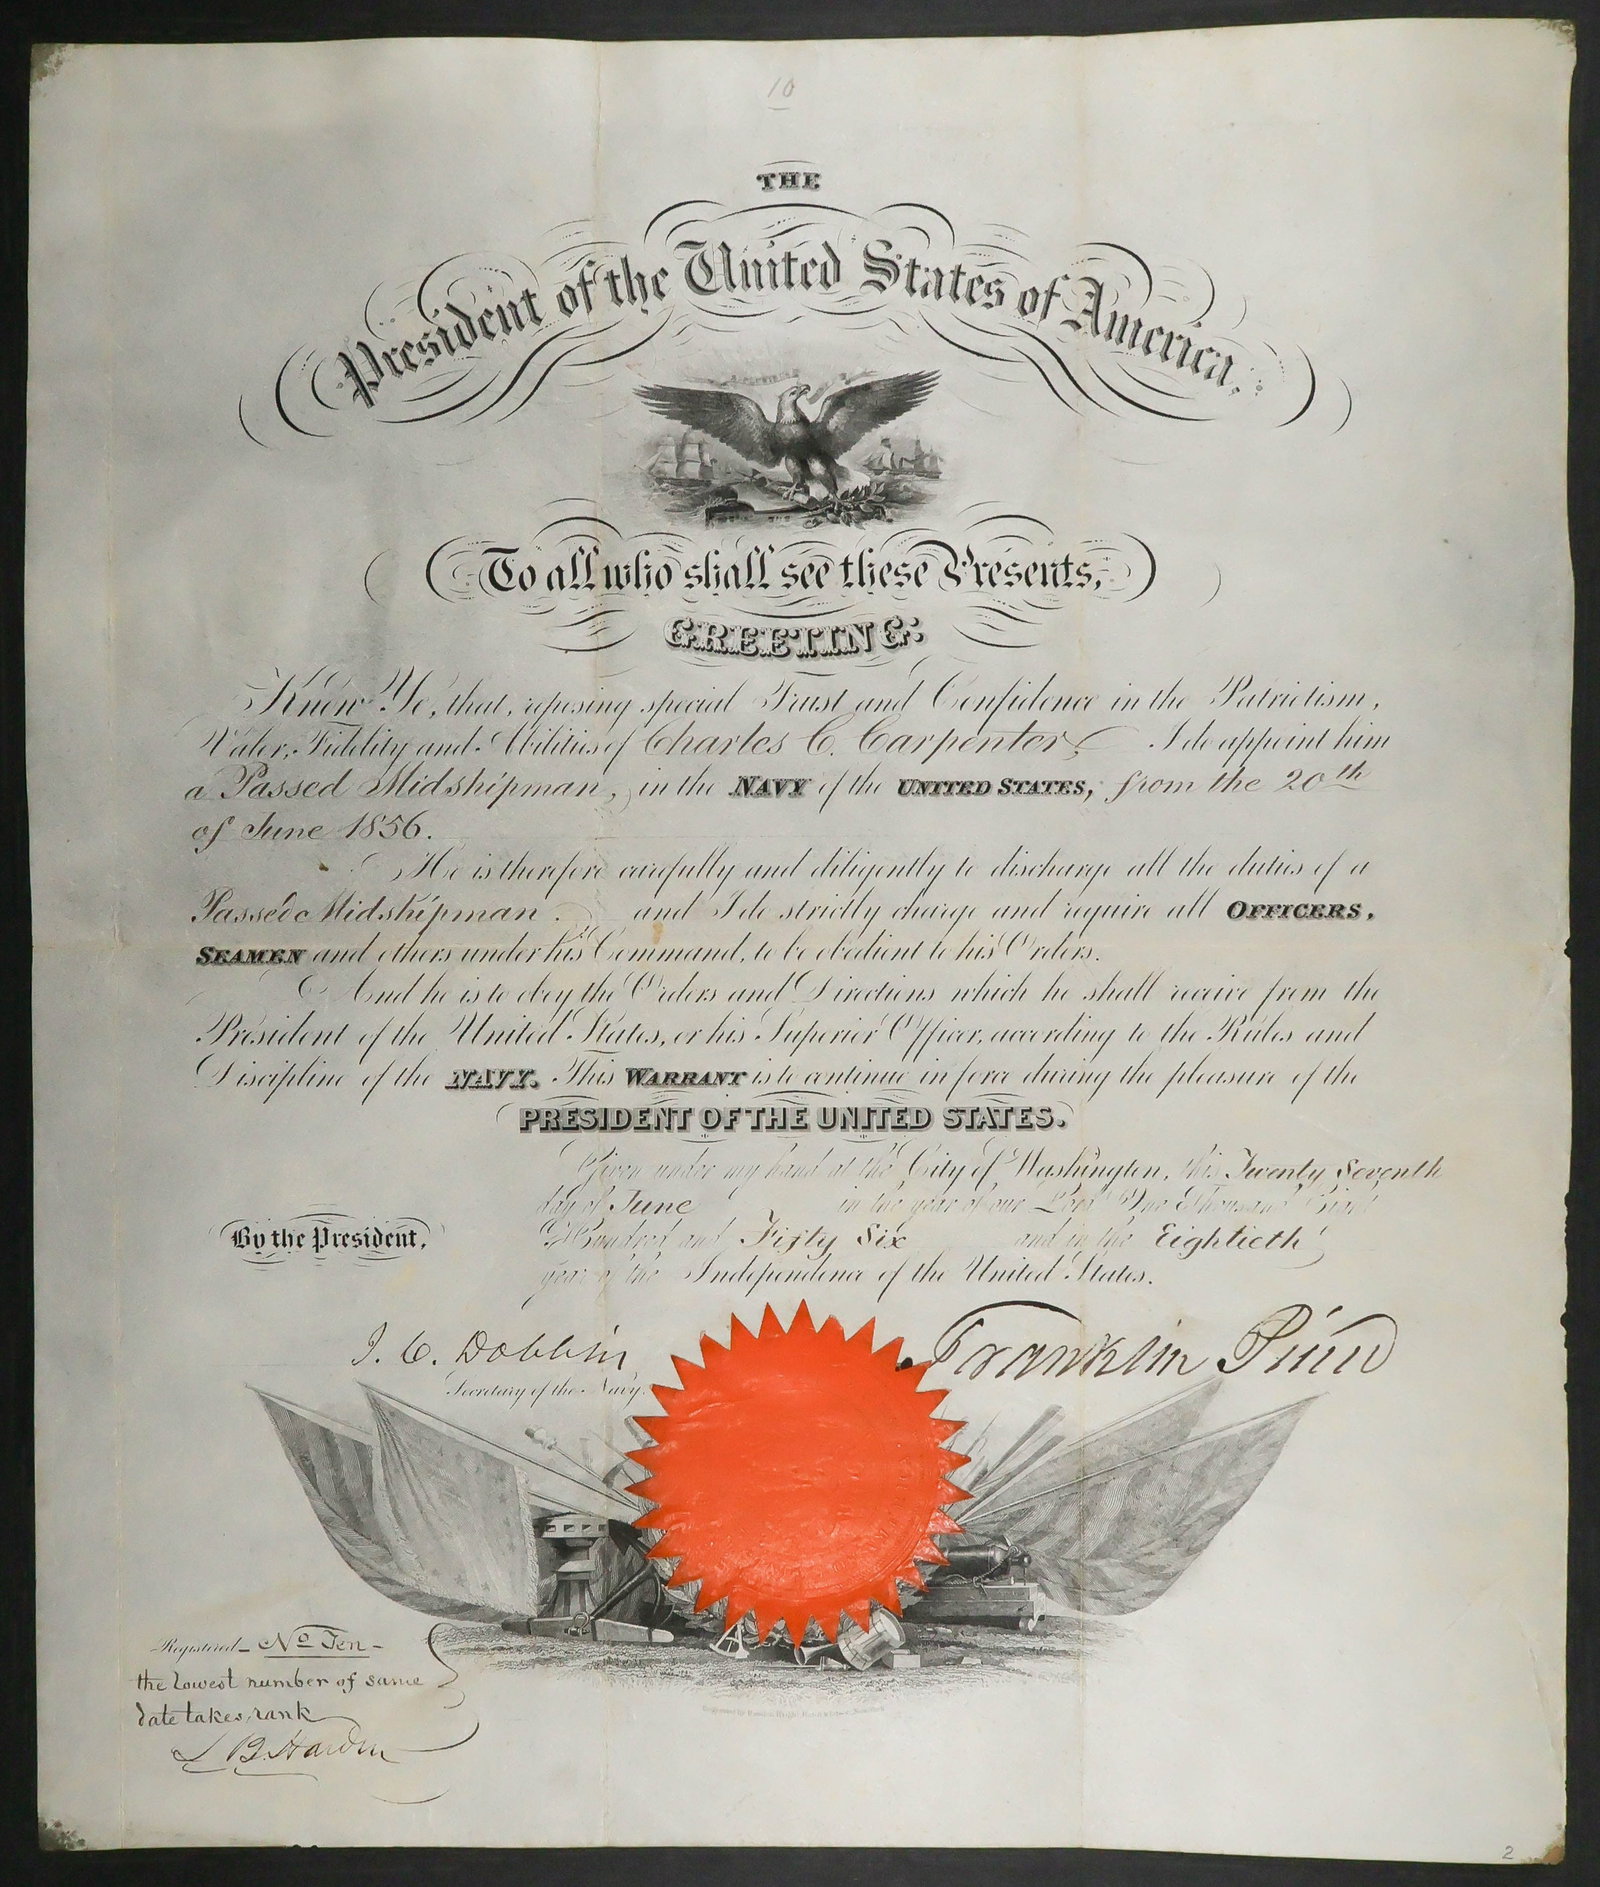 10
THE
President of the United States of America.
To all who shall see these Presents,
GREETING:
Know Ye, that, reposing special Trust and Confidence in the Patriotism,
Valor, Fidelity and Abilities of Charles C. Carpenter, I do appoint him
a Passed Midshipman, in the NAVY of the UNITED STATES, from the 20th
of June 1856.
He is therefore carefully and diligently to discharge all the duties of a
Passed Midshipman. and I do strictly charge and require all OFFICERS,
SEAMEN and others under his Command, to be obedient to his Orders.
And he is to obey the Orders and Directions which he shall receive from the
President of the United States, or his Superior Officer, according to the Rules and
Discipline of the NAVY. This WARRANT is to continue in force during the pleasure of the
PRESIDENT OF THE UNITED STATES.
Given under my hand at the City of Washington, this Twenty Seventh
day of June in the year of our Lord One Thousand Eight
By the President,
Hundred and Fifty Six and in the Eightieth
year of the Independence of the United States.
J. C. Dobbin
Franklin Pierce
Secretary of the Navy.
Registered No Ten
the lowest number of same
date takes rank
2